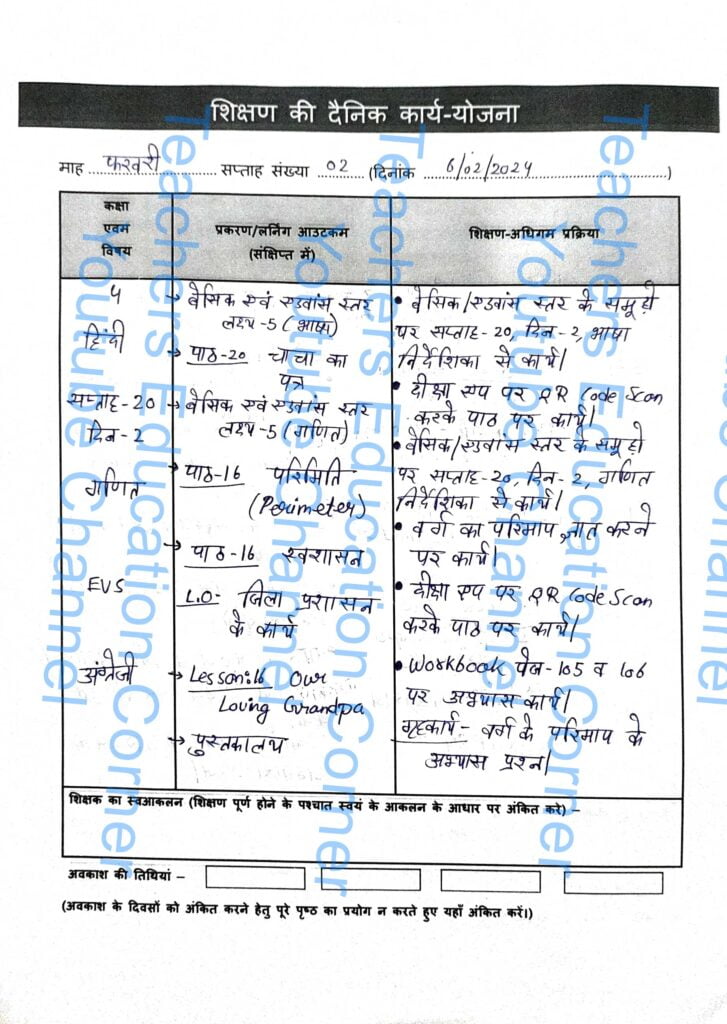 शिक्षण की दैनिक कार्य-योजना
माह फरवरी सप्ताह संख्या 02 (दिनांक 6/02/2024)
कक्षा एवम विषय
प्रकरण/लर्निंग आउटकम (संक्षिप्त में)
शिक्षण-अधिगम प्रक्रिया
5
हिंदी
सप्ताह-20
दिन-2
गणित
EVS
अंग्रेजी
→ बेसिक एवं एडवांस स्तर
लक्ष्य-5 (भाषा)
→ पाठ-20 चाचा का
पत्र
→ बेसिक एवं एडवांस स्तर
लक्ष्य-5 (गणित)
→ पाठ-16 परिमिति
(Perimeter)
→ पाठ-16 स्वशासन
L.O- जिला प्रशासन
के कार्य
→ Lesson:16 Our
Loving Grandpa
→ पुस्तकालय
• बेसिक/एडवांस स्तर के समूहों
पर सप्ताह-20, दिन-2, भाषा
निर्देशिका से कार्य।
• दीक्षा एप पर QR Code Scan
करके पाठ पर कार्य।
• बेसिक/एडवांस स्तर के समूहों
पर सप्ताह-20, दिन-2, गणित
निर्देशिका से कार्य।
• वर्ग का परिमाप ज्ञात करने
पर कार्य।
• दीक्षा एप पर QR Code Scan
करके पाठ पर कार्य।
• Workbook पेज-105 व 106
पर अभ्यास कार्य।
गृहकार्य:- वर्ग के परिमाप के
अभ्यास प्रश्न।
शिक्षक का स्वआकलन (शिक्षण पूर्ण होने के पश्चात स्वयं के आकलन के आधार पर अंकित करे) –
अवकाश की तिथियां –
(अवकाश के दिवसों को अंकित करने हेतु पूरे पृष्ठ का प्रयोग न करते हुए यहाँ अंकित करें।)
Teachers Education Corner
Youtube Channel
Teachers Education Corner
Youtube Channel